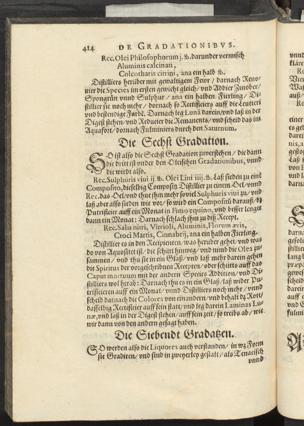 414 DE GRADATIONIBVS.
Rec. Olei Philosophorum j. ℔. darunder vermisch
Aluminis calcinati,
Colcotharis citrini, ana ein halb ℔.
Distilliers herüber mit gewaltigem Fewr / darnach
der Species im ersten gewicht gleich / vnd Addier Zinober /
Spongrün vnnd Sulphur / ana ein halben Fierling /
stillier sie noch mehr / darnach so Rectificiers auff die
vnd bestendige Farb. Darnach leg Lunā darein / vnd laß in der
Digest stehen / vnd Reducier die Remanentz / vnd scheid das im
Aquafort / darnach Fulminiers durch den Saturnum.
Die Sechst Gradation.
SO ist also die Sechst Gradation zuverstehen / die dann
die dritt ist vnder den Olefischen Gradationibus, vnnd
die wirdt also.
Rec. Sulphuris viui ij ℔. Olei Lini iiij. ℔. Laß sieden zu eim
Composito, dieselbig Composit Distillier zu einem Oel. vnnd
Rec. das Oel / vnd thue jhm mehr soviel Sulphuris viui zu / vnd
laß aber also sieden wie vor / so wird ein Compositū darauß /
Putrificier auff ein Monat in Fimo equino, vnd besser lenger
dann ein Monat: Darnach schlag jhm zu diß Recept.
Rec. Salis nitri, Vitrioli, Aluminis, Florum æris,
Croci Martis, Cinnabrij, ana ein halben Fierling.
Distillier es in den Recipienten / was herüber gehet / vnd was
do von Aquositet ist / die scheit hinweg / vnd nimb die Oley
sammen / vnd thu sie in ein Glaß / vnd laß mehr darein gehen
die Spiritus der vorgeschribnen Recepten / oder schütts auff das
Caput mortuum mit der andern Species Addition / vnd
stilliers wol herab: Darnach thu es in ein Glaß / laß wider
trificieren auff ein Monat / vnnd Distilliers noch mehr / vnnd
scheid darnach die Colores von einander / vnd behalt die Rotē
dasselbig Rectificier auff sein statt / vnd leg darein Laminas
næ, vnd laß in der Digest stehen / auff sein zeit / so wirds ab / wie
wir dann von den andern gesagt haben.
Die Siebendt Gradatzen.
SO werden also die Liquores auch verstanden / in wz Form
sie Gradiren / vnd sind in zween theyl gestalt / als Tenacisch
vnnd